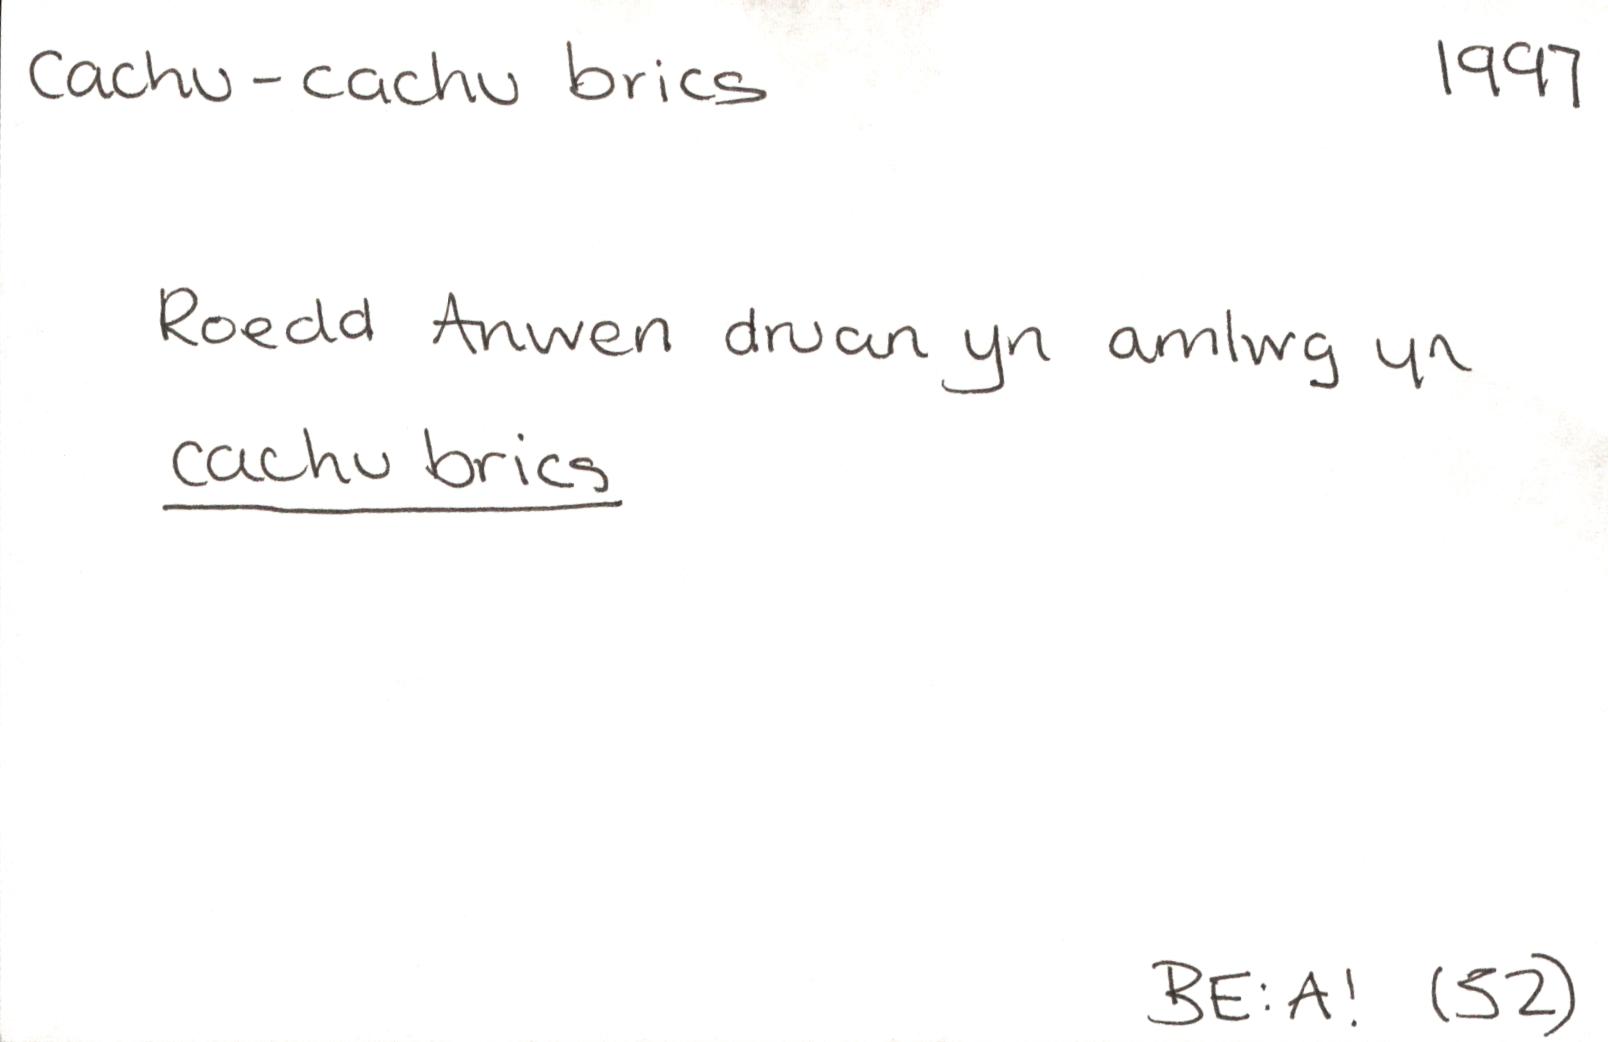 Cachu - cachu brics 1997
Roedd Anwen druan yn amlwg yn
cachu brics
BE:A! (52)